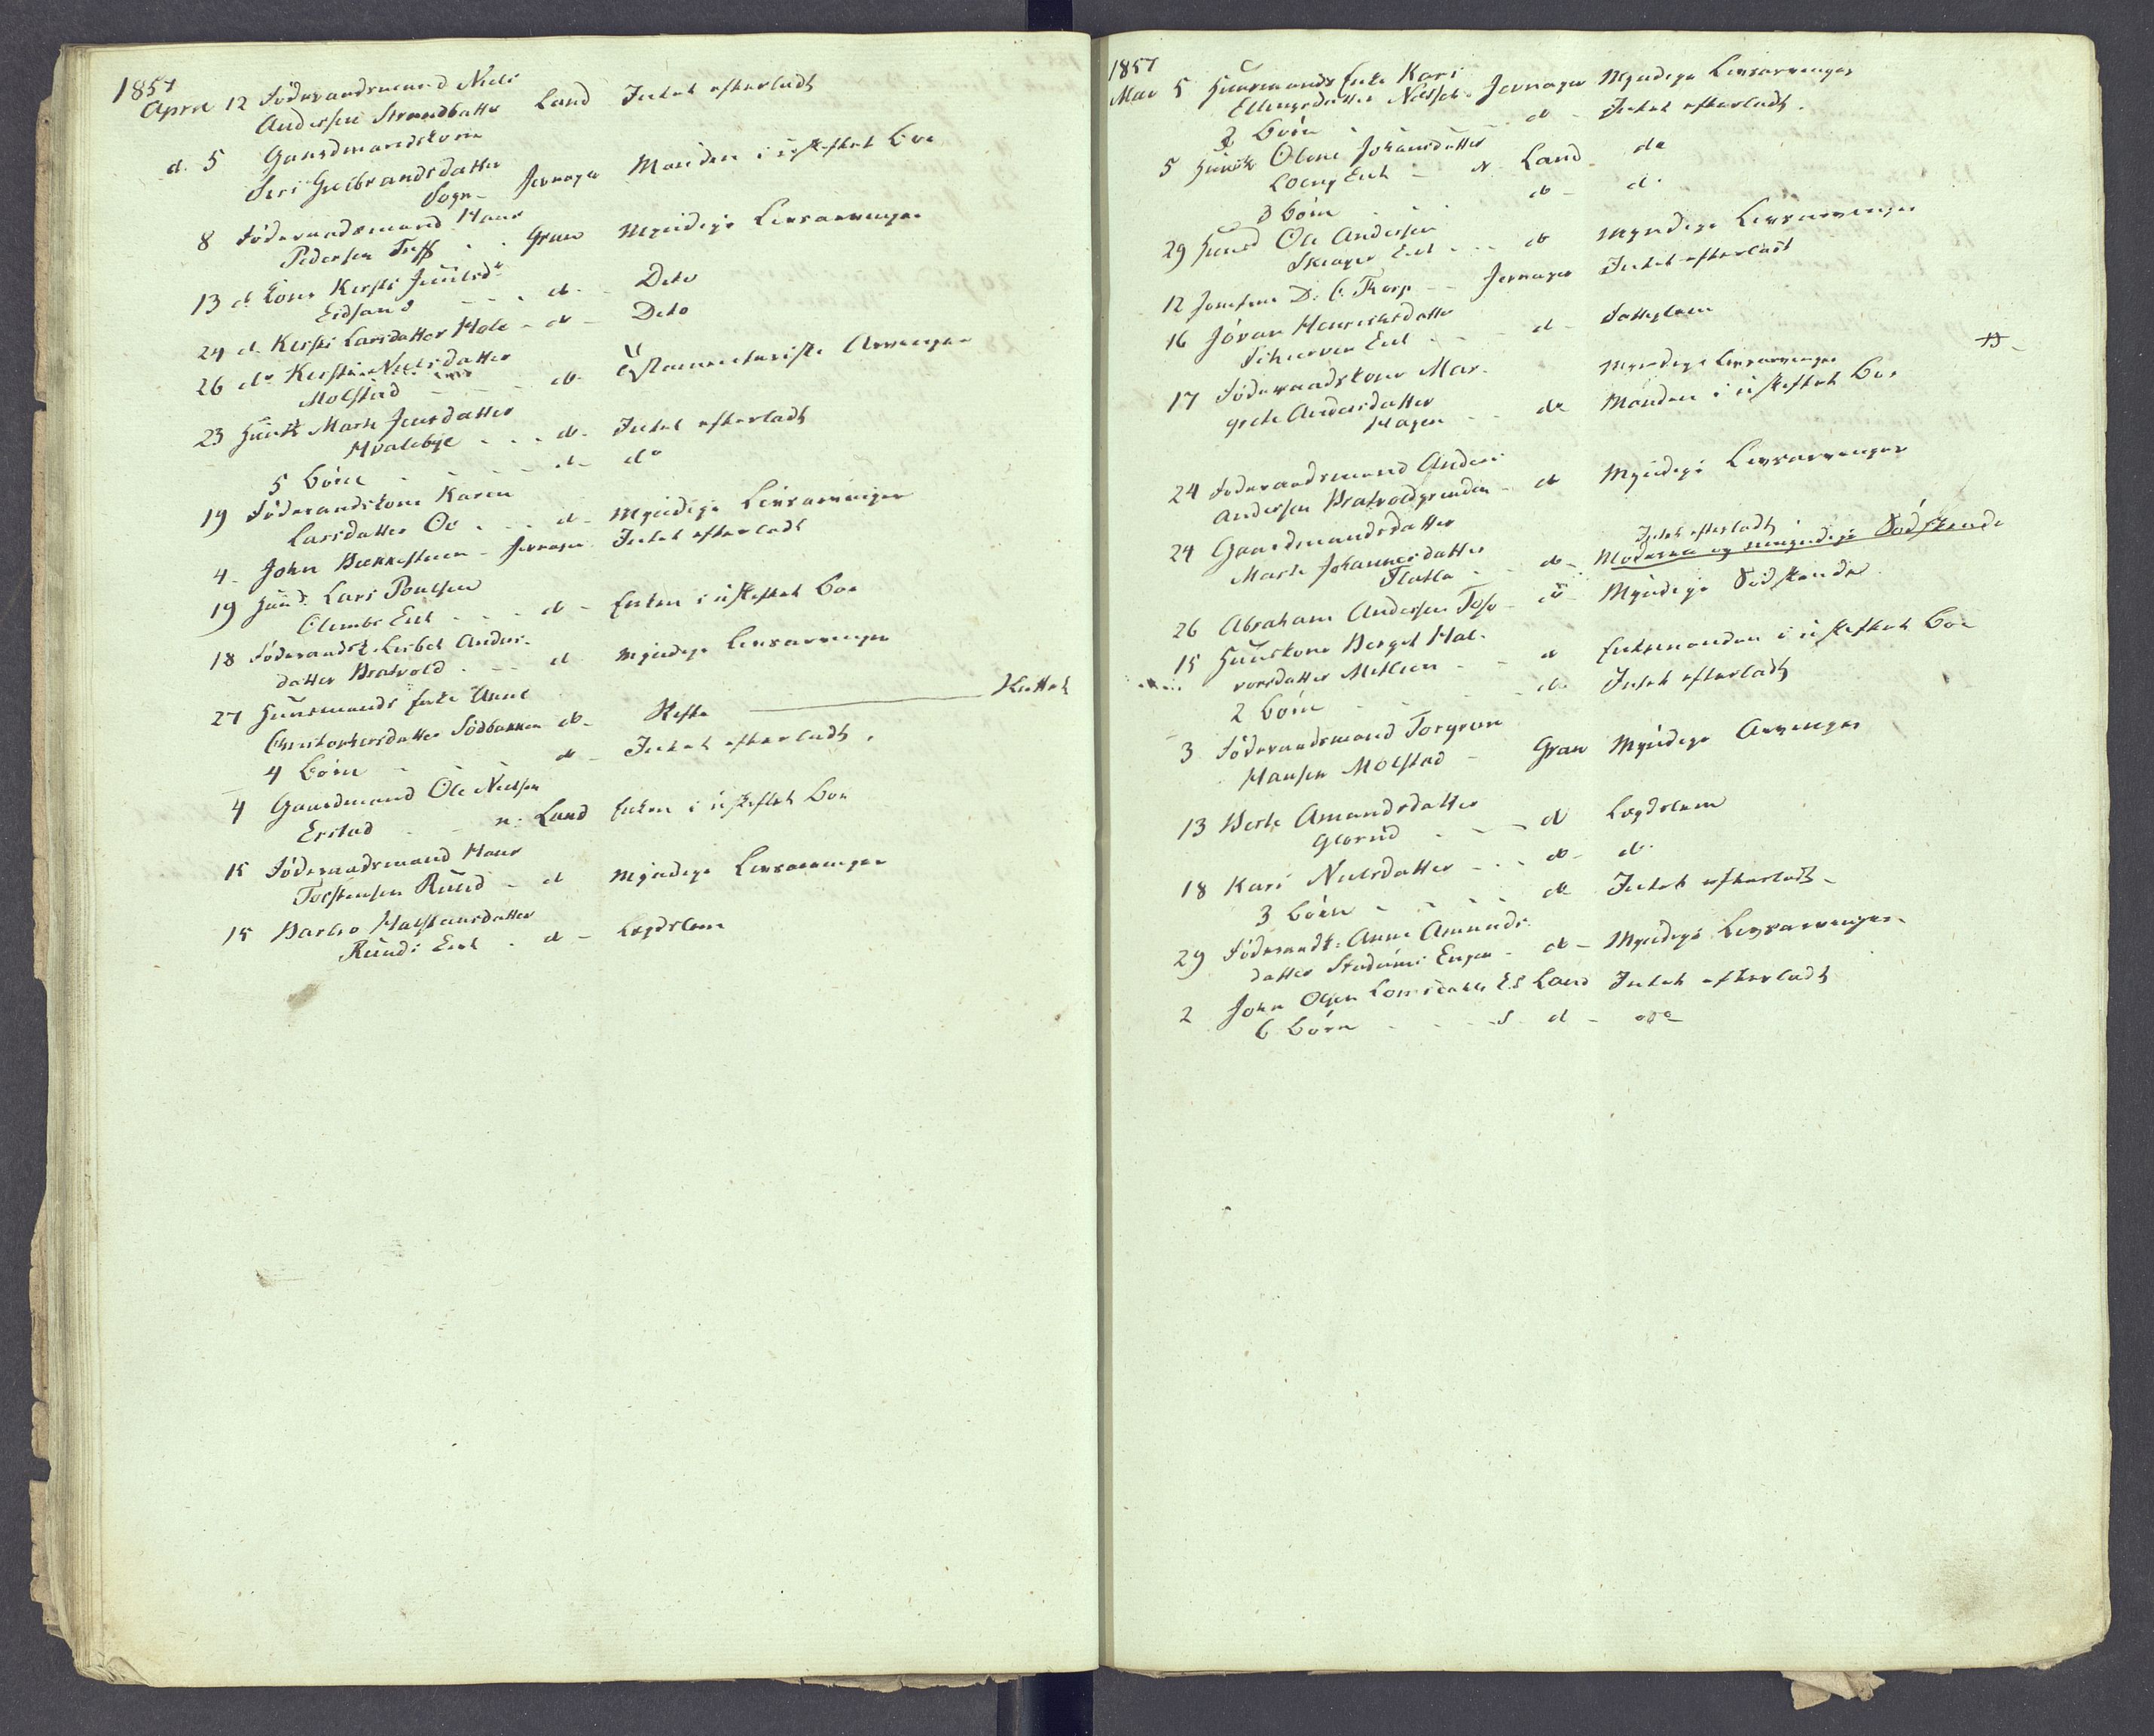 1857
April 12 Föderaadsmand Niels
Andersen Strandbatte Land Intet efterladt
d. 5 Gaardmandskone
Siri Gulbrandsdatter
Sogn - Jevnager Manden i uskiftet Boe
8 Föderaadsmand Hans
Pedersen Tuff - Gran Myndige Livsarvinger
13 d. Kone Kersti Juulsdr
Eidsand - - d. - Deto
24 d. Kersti Larsdatter Hole - d - Deto
26 do Kersti Nielsdatter
Molstad - - d. Testamentariske Arvinger
23 Huusk Marte Jensdatter
Hvalebye - - - d. Intet efterladt
5 Börn - - - d. do
19 Föderaadskone Karen
Larsdatter Oe . - - d - Myndige Livsarvinger
4. John Bækkestuen - Jevnager Intet efterladt
19 Huusd. Lars Poulsen
Olimbs Eiet - - d - Enken i uskiftet Boe
18 Föderaadsk Lisbet Anders-
datter Bratvold - - d Myndige Livsarvinger
27 Huusmands Enke Anne
Christophersdatter Södbakken d. Skifte Sluttet
4 Börn - - - d - Intet efterladt.
4 Gaardmand Ole Nielsen
Erstad - - n: Land Enken i uskiftet Boe
15 Föderaadsmand Hans
Torstensen Ruud - d Myndige Livsarvinger
15 Barbro Halstensdatter
Ruuds Eiet - d - Lægdslem
1857
Mai 5 Huusmands Enke Kari
Ellingsdatter Jevnager Myndige Livsarvinger
3 Börn - - d - Intet efterladt.
5 Huusk Olene Johansdatter
Loeng Eiet - N. Land do
3 Börn - - - d - d.
29 Huusd Ole Andersen
Skiager Eiet - - - d Myndige Livsarvinger
12 D. C. Thorp - - Jevnager Intet efterladt
16 Jöran Henriksdatter
Eiet - - d - Fattiglem
17 Föderaadskone Mar-
grete Andersdatter Myndige Livsarvinger
Hagen - - do Manden i uskiftet Boe
24 Föderaadsmand Anders
Andersen Bratvoldgrinden - d Myndige Livsarvinger
24 Gaardmandsdatter
Marte Johannesdatter Intet efterladt
Flatla - - d - Moderen og umyndige Södskende
26 Abraham Andersen Toso - d - Myndige Södskende
15 Huuskone Berget Hal-
vorsdatter Melleen - - d Enkemanden i uskiftet Boe
2 Börn - - - d. Intet efterladt
3 Föderaadsmand Torgrim
Hansen Molstad - Gran Myndige Arvinger
13 Berte Amundsdatter
Glorud - - - d Lægdslem
18 Kari Nielsdatter - - - d - d.
3 Börn - - - - d Intet efterladt -
29 Föderaadsk: Anne Amunds-
datter Stadums Engen - d - Myndige Livsarvinger
2 John Olsen Lomsdahls E. S Land Intet efterladt
6 Börn - - - S. d - do